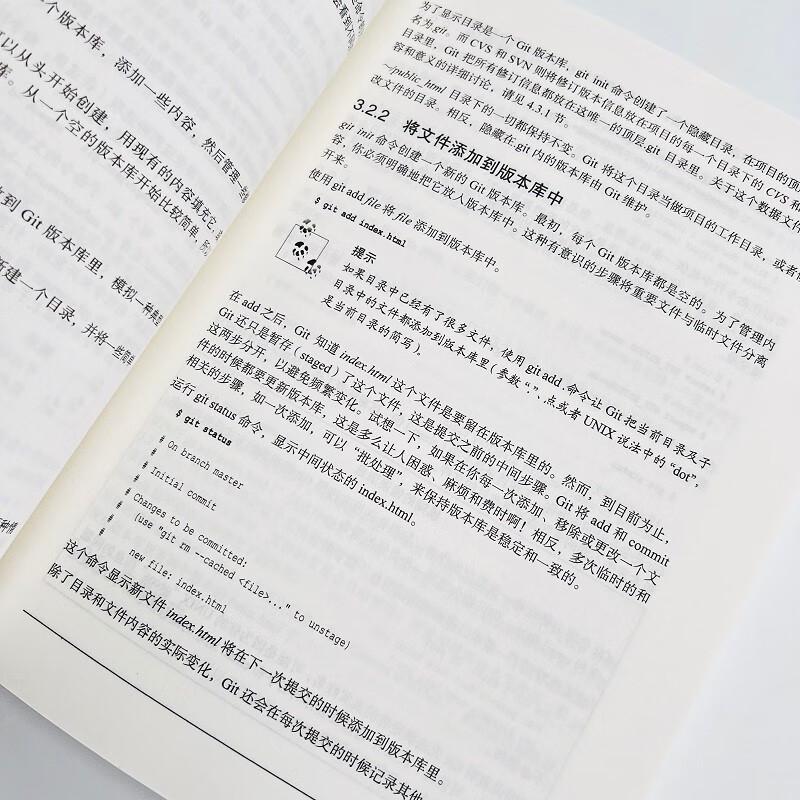 个版本库，添加一些内容，然后管理一些
可以从头开始创建，用现有的内容填充它，
库。从一个空的版本库开始比较简单，所
收到 Git 版本库里，模拟一种典型
新建一个目录，并将一些简单
为了显示目录是一个 Git 版本库，git init 命令创建了一个隐藏目录，在项目的顶
名为.git。而 CVS 和 SVN 则将修订版本信息放在项目的每一个目录下的 CVS 和
目录里，Git 把所有修订信息都放在这唯一的顶层.git 目录里。关于这个数据文件
容和意义的详细讨论，请见 4.3.1 节。
~/public_html 目录下的一切都保持不变。Git 将这个目录当做项目的工作目录，或者
改文件的目录。相反，隐藏在.git 内的版本库由 Git 维护。
3.2.2 将文件添加到版本库中
git init 命令创建一个新的 Git 版本库。最初，每个 Git 版本库都是空的。为了管理内
容，你必须明确地把它放入版本库中。这种有意识的步骤将重要文件与临时文件分离
开来。
使用 git add file 将 file 添加到版本库中。
$ git add index.html
提示
如果目录中已经有了很多文件，使用 git add .命令让 Git 把当前目录及子
目录中的文件都添加到版本库里（参数“.”、点或者 UNIX 说法中的“dot”，
是当前目录的简写）。
在 add 之后，Git 知道 index.html 这个文件是要留在版本库里的。然而，到目前为止，
Git 还只是暂存（staged）了这个文件，这是提交之前的中间步骤。Git 将 add 和 commit
这两步分开，以避免频繁变化。试想一下，如果在你每一次添加、移除或更改一个文
件的时候都要更新版本库，这是多么让人困惑、麻烦和费时啊！相反，多次临时的和
相关的步骤，如一次添加，可以“批处理”，来保持版本库是稳定和一致的。
运行 git status 命令，显示中间状态的 index.html。
$ git status
# On branch master
#
# Initial commit
#
# Changes to be committed:
# (use "git rm --cached <file>..." to unstage)
#
# new file: index.html
这个命令显示新文件 index.html 将在下一次提交的时候添加到版本库里。
除了目录和文件内容的实际变化，Git 还会在每次提交的时候记录其他